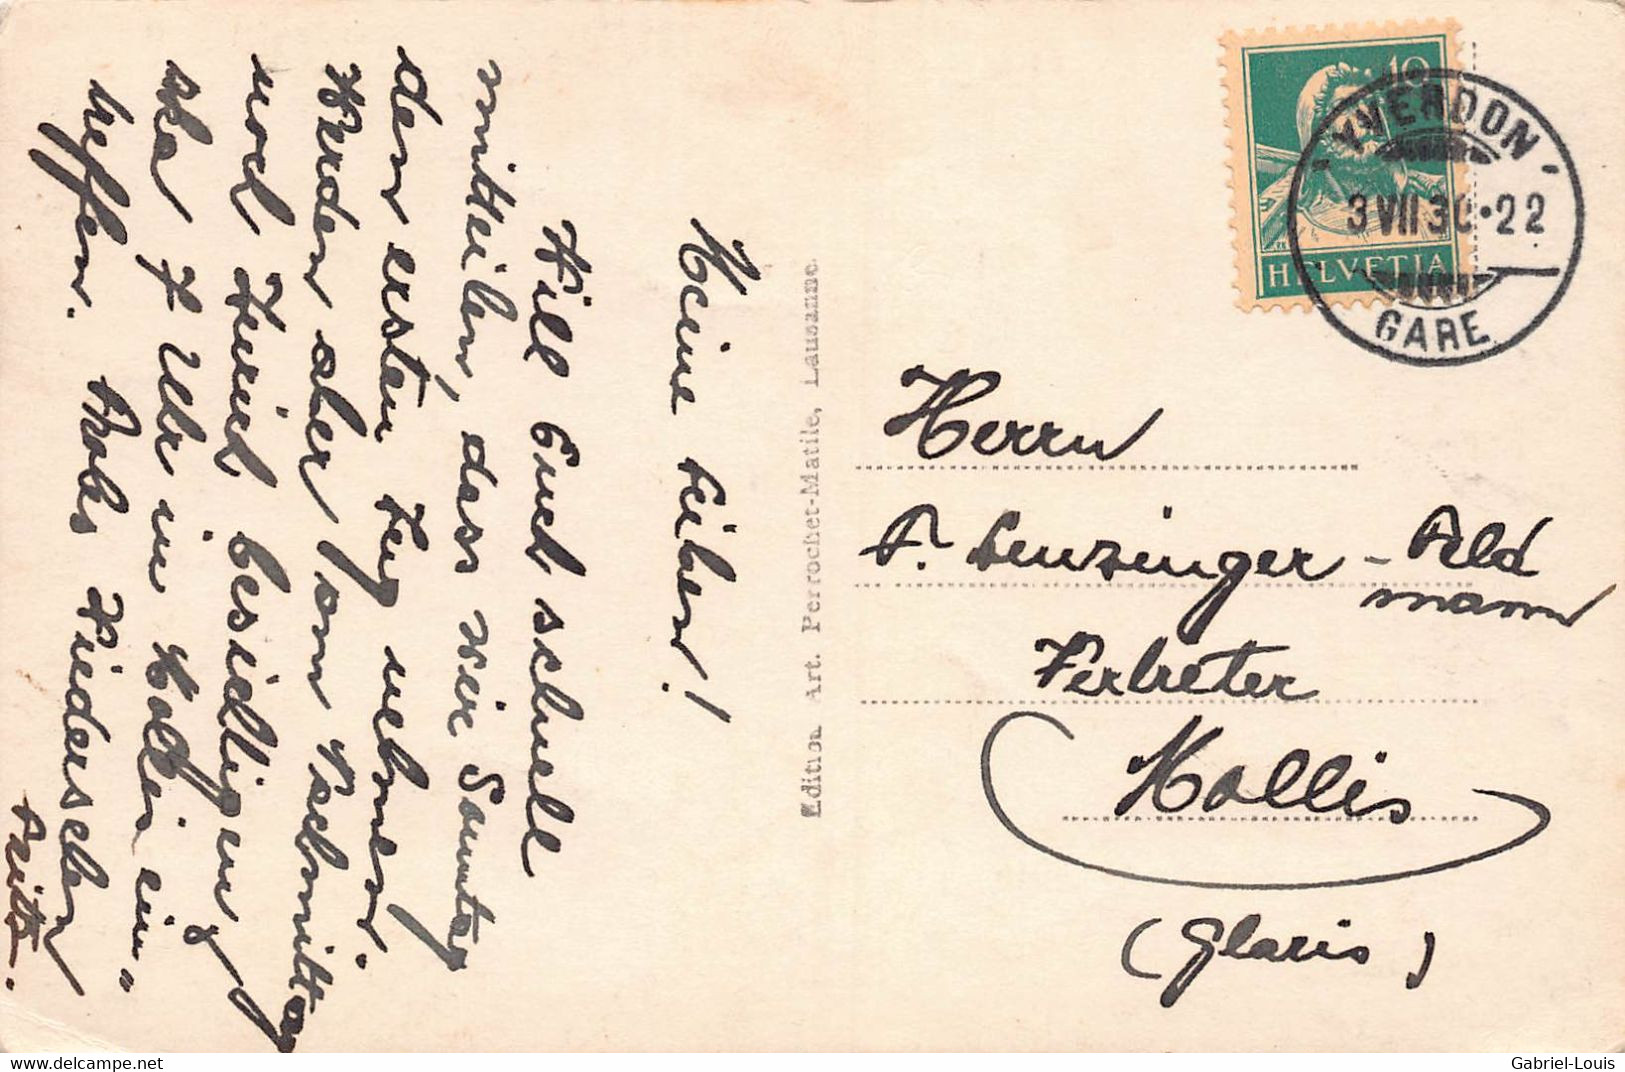 Meine Lieben!
Will Euch schnell
mitteilen, dass wir Sonntag
den ersten Zug nehmen.
Werden aber am Nachmittag
noch Zürich besichtigen &
ca 7 Uhr in Mollis ein-
treffen. Frohes Wiedersehen
Fritz.
Edition Art. Perrochet-Matile, Lausanne.
10
HELVETIA
YVERDON
3 VII 30 • 22
GARE
Herrn
F. Leuzinger - Feld
mann
Vertreter
Mollis
(Glaris)
delcampe.net
Gabriel-Louis